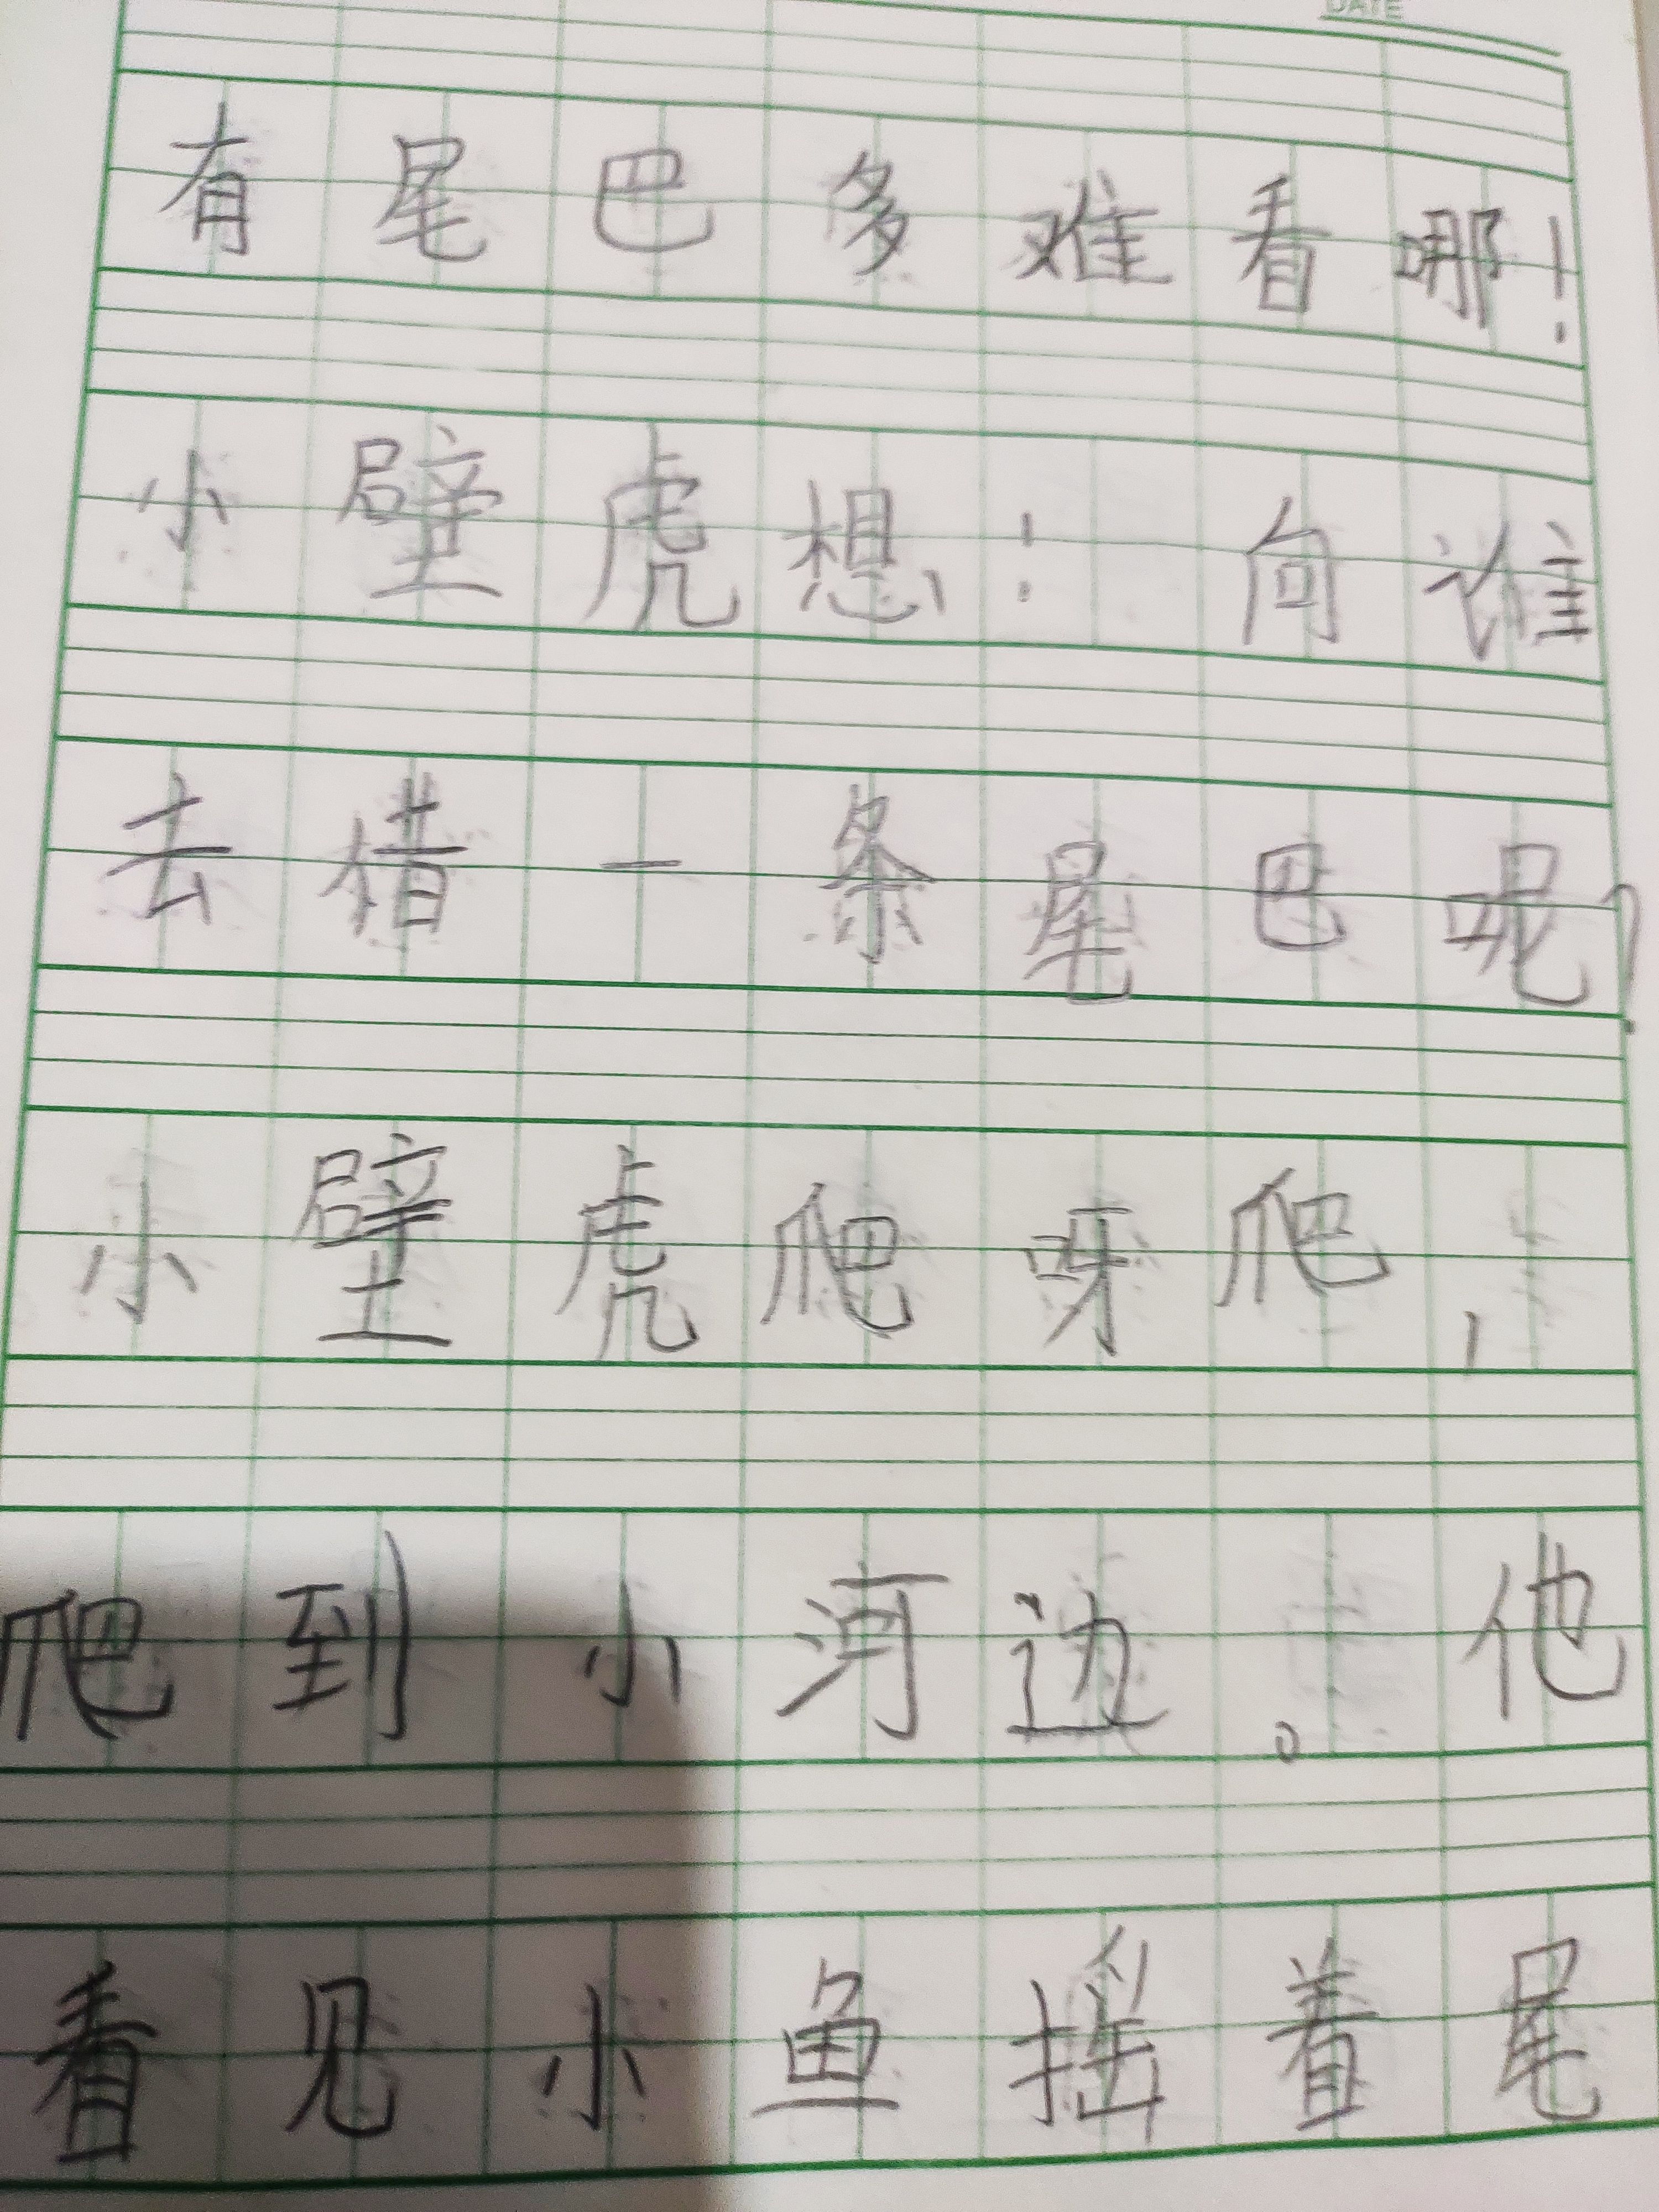 DATE
有尾巴多难看哪!
小壁虎想: 向谁
去借一条尾巴呢?
小壁虎爬呀爬,
爬到小河边。他
看见小鱼摇着尾